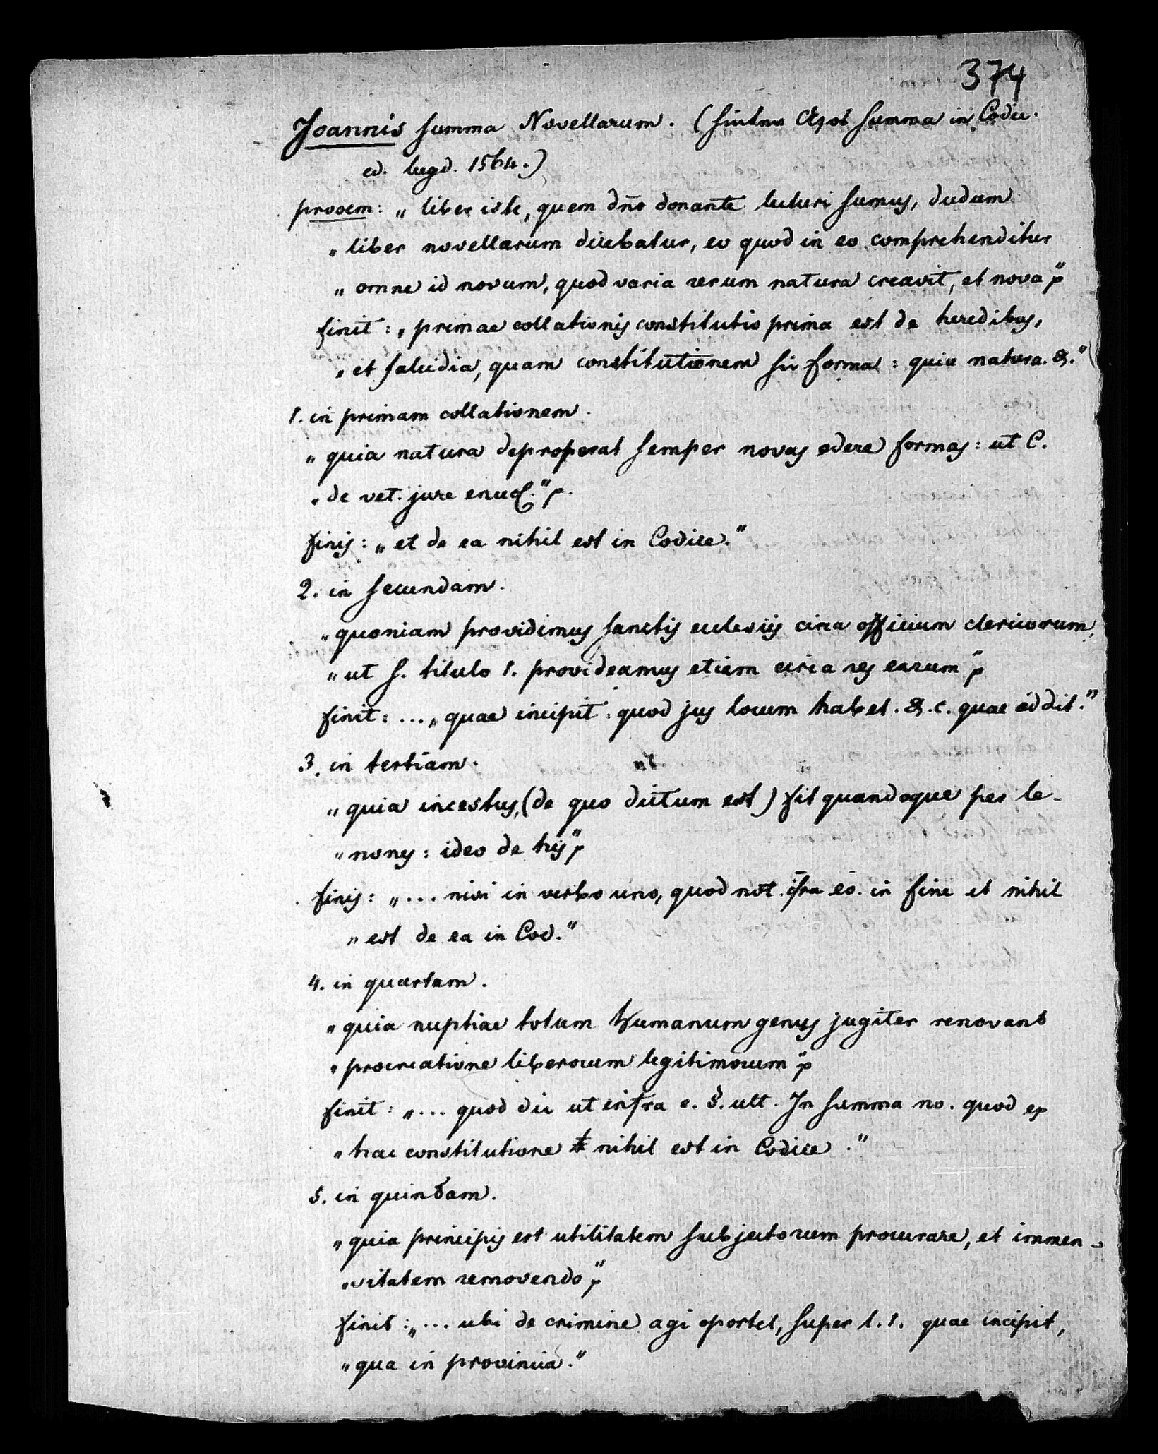 374
Joannis summa Novellarum. (hinter Azos summa in Codic.
ed. lugd. 1564.)
prooem: „ liber iste, quem dño donante lecturi sumus, dudum
„ liber novellarum dicebatur, eo quod in eo comprehenditur
„ omne id novum, quod varia rerum natura creavit, et nova“
finit: „ primae collationis constitutio prima est de heredibus,
„ et falcidia, quam constitutionem sic forma: quia natura &.“
1. in primam collationem.
„ quia natura deproperat semper novas edere formas: ut C.
„ de vet. jure enucl.“
finis: „ et de ea nihil est in Codice.“
2. in secundam.
„ quoniam providimus sanctis ecclesiis circa officium clericorum,
„ ut s. titulo 1. provideamus etiam circa res earum“
finit: ... „ quae incipit: quod jus locum habet. &. c. quae addit.“
3. in tertiam.
„ quia incestus, (de quo dictum est) fit quandoque per le-
„ nones: ideo de his“
finis: „ ... nisi in verbo uno, quod not. ifra eo. in fine et nihil
„ est de ea in Cod.“
4. in quartam.
„ quia nuptiae totum humanum genus jugiter renovant
„ procreatione liberorum legitimorum“
finit: „ ... quod dic ut infra e. §. ult. In summa no. quod ex
„ hac constitutione nihil est in Codice.“
5. in quintam.
„ quia principis est utilitatem subjectorum procurare, et immen-
„ sitatem removendo“
finit: „ ... ubi de crimine agi oportet, super l. 1. quae incipit,
„ qua in provincia.“